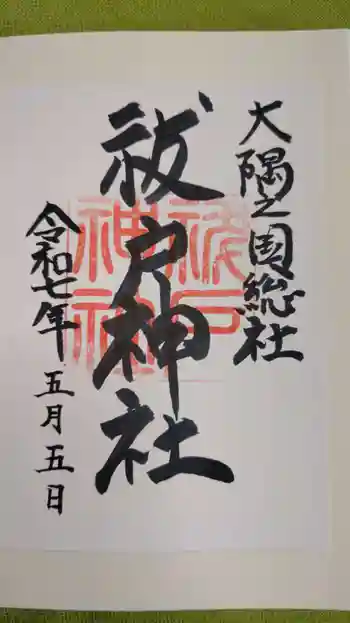 大隅之国総社
祓戸神社
令和七年 五月五日
祓戸
神社